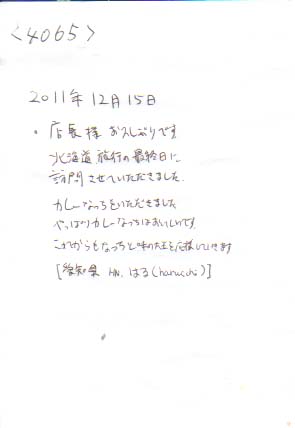 <4065>
2011年12月15日
・店長様 お久しぶりです
北海道旅行の最終日に
訪問させていただきました。
カレーなっちをいただきました
やっぱりカレーなっちはおいしいです。
これからもなっちと味の大王を応援していきます
[愛知県 HN. はる(haruchi)]